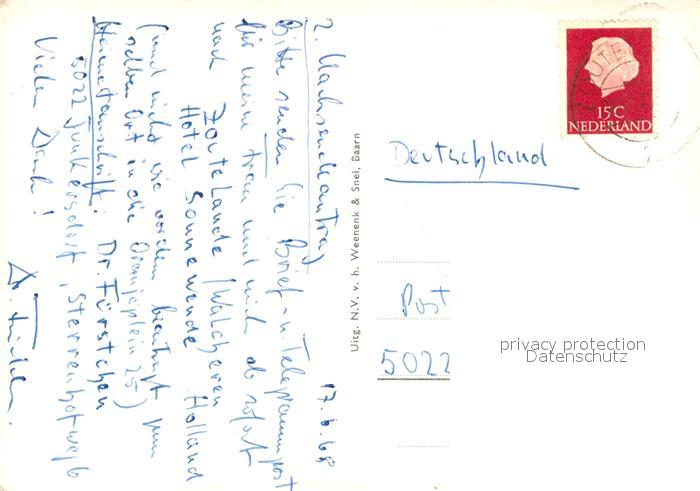 17.6.68
2. Nachsendeantrag
Bitte senden Sie Brief- u. Telegrammpost
für meine Frau und mich ab sofort
nach Zoutelande / Walcheren
Hotel Sonnewende Holland
(und nicht wie vorher beantragt, zum
selben Ort in die Oranjeplein 25)
Heimatanschrift: Dr. Fürstchen
5022 Junkersdorf, Sterrenhofweg 6
Vielen Dank!
Uitg. N.V. v. h. Weenenk & Snel, Baarn
15 C
NEDERLAND
Deutschland
Post
5022
privacy protection
Datenschutz